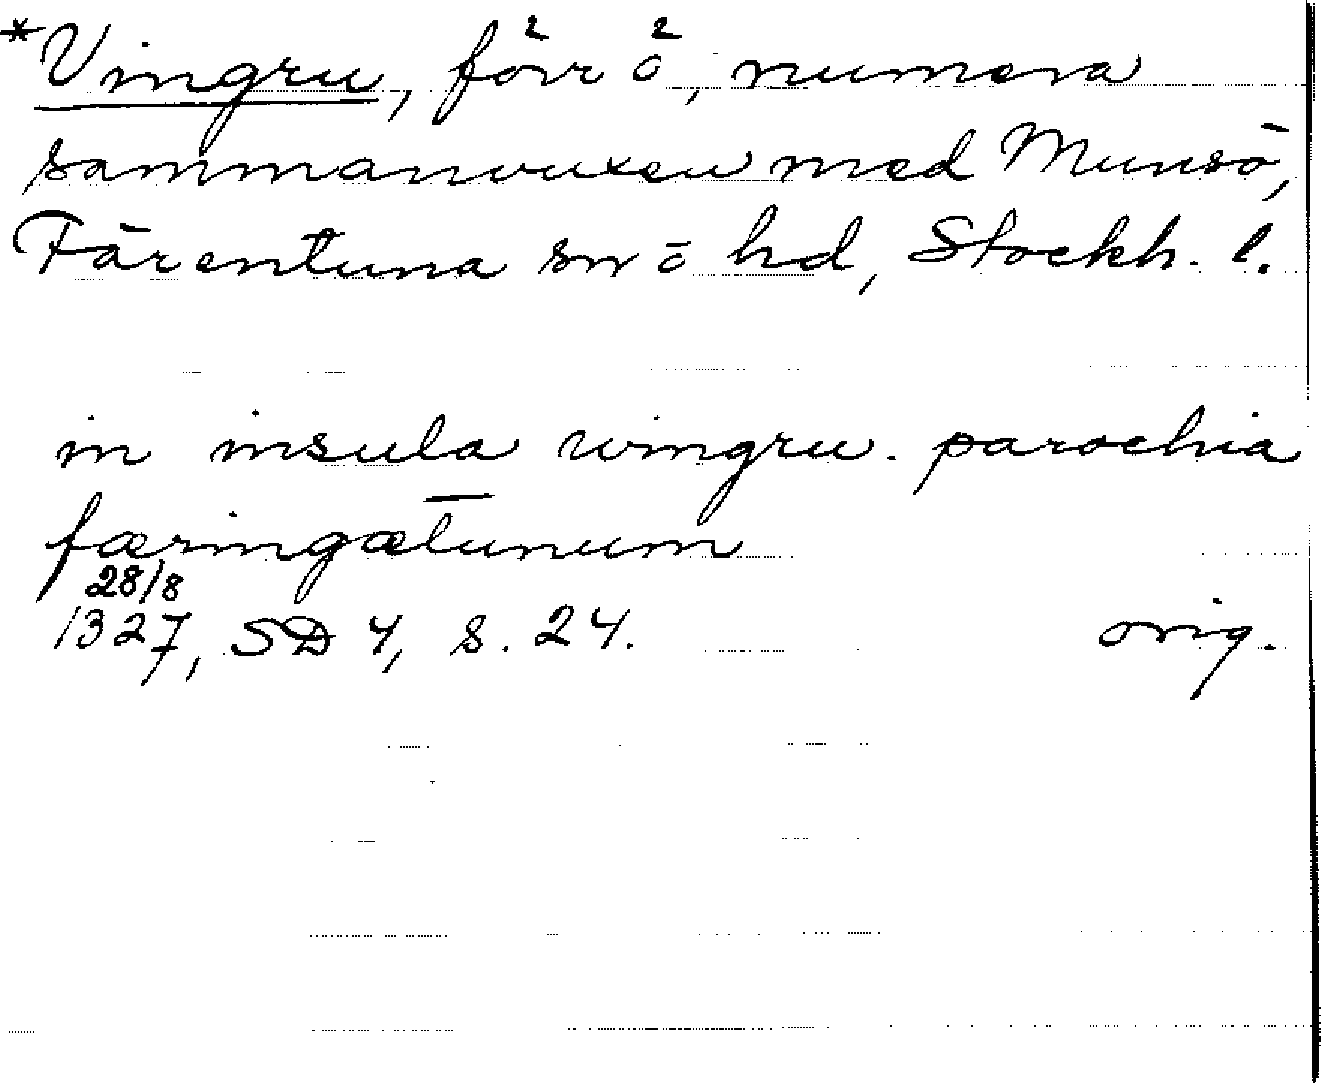 *Vingru, förr ö, numera
sammanvuxen med Munsö,
Färentuna sn o hd, Stockh. l.
in insula wingru. parochia
færingætunum
28/8
1327, SD 4, s. 24. orig.